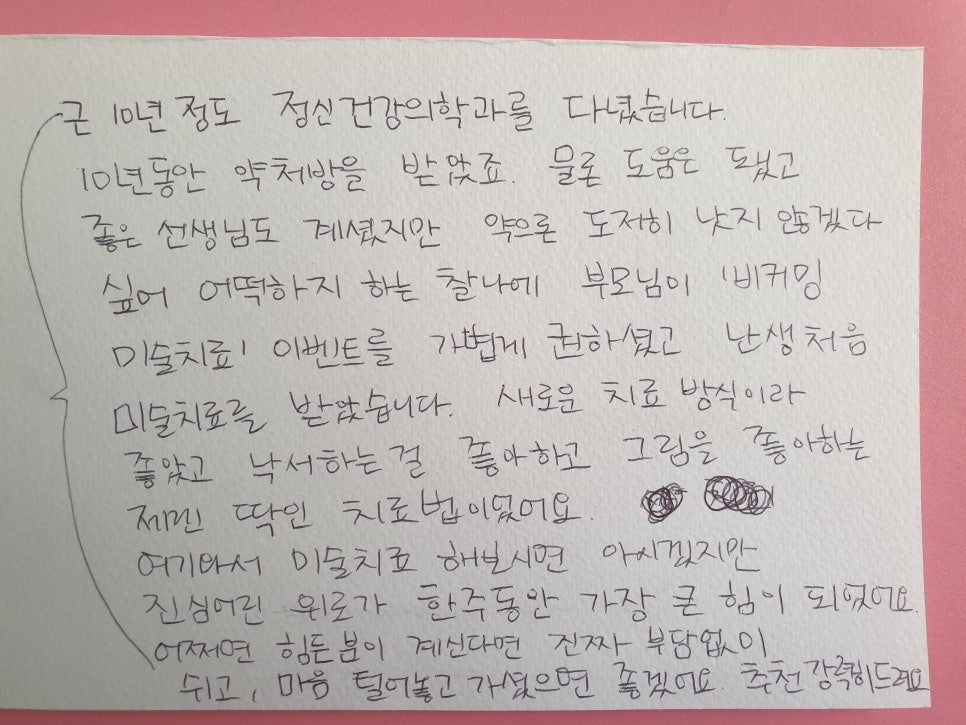 근 10년 정도 정신건강의학과를 다녔습니다.
10년동안 약처방을 받았죠. 물론 도움은 됐고
좋은 선생님도 계셨지만 약으론 도저히 낫지 않겠다
싶어 어떡하지 하는 찰나에 부모님이 '비커밍
미술치료' 이벤트를 가볍게 권하셨고 난생처음
미술치료를 받았습니다. 새로운 치료 방식이라
좋았고 낙서하는걸 좋아하고 그림을 좋아하는
제겐 딱인 치료법이었어요.
여기와서 미술치료 해보시면 아시겠지만
진심어린 위로가 한주동안 가장 큰 힘이 되었어요.
어쩌면 힘든분이 계신다면 진짜 부담없이
쉬고, 마음 털어놓고 가셨으면 좋겠어요. 추천강력히드려요